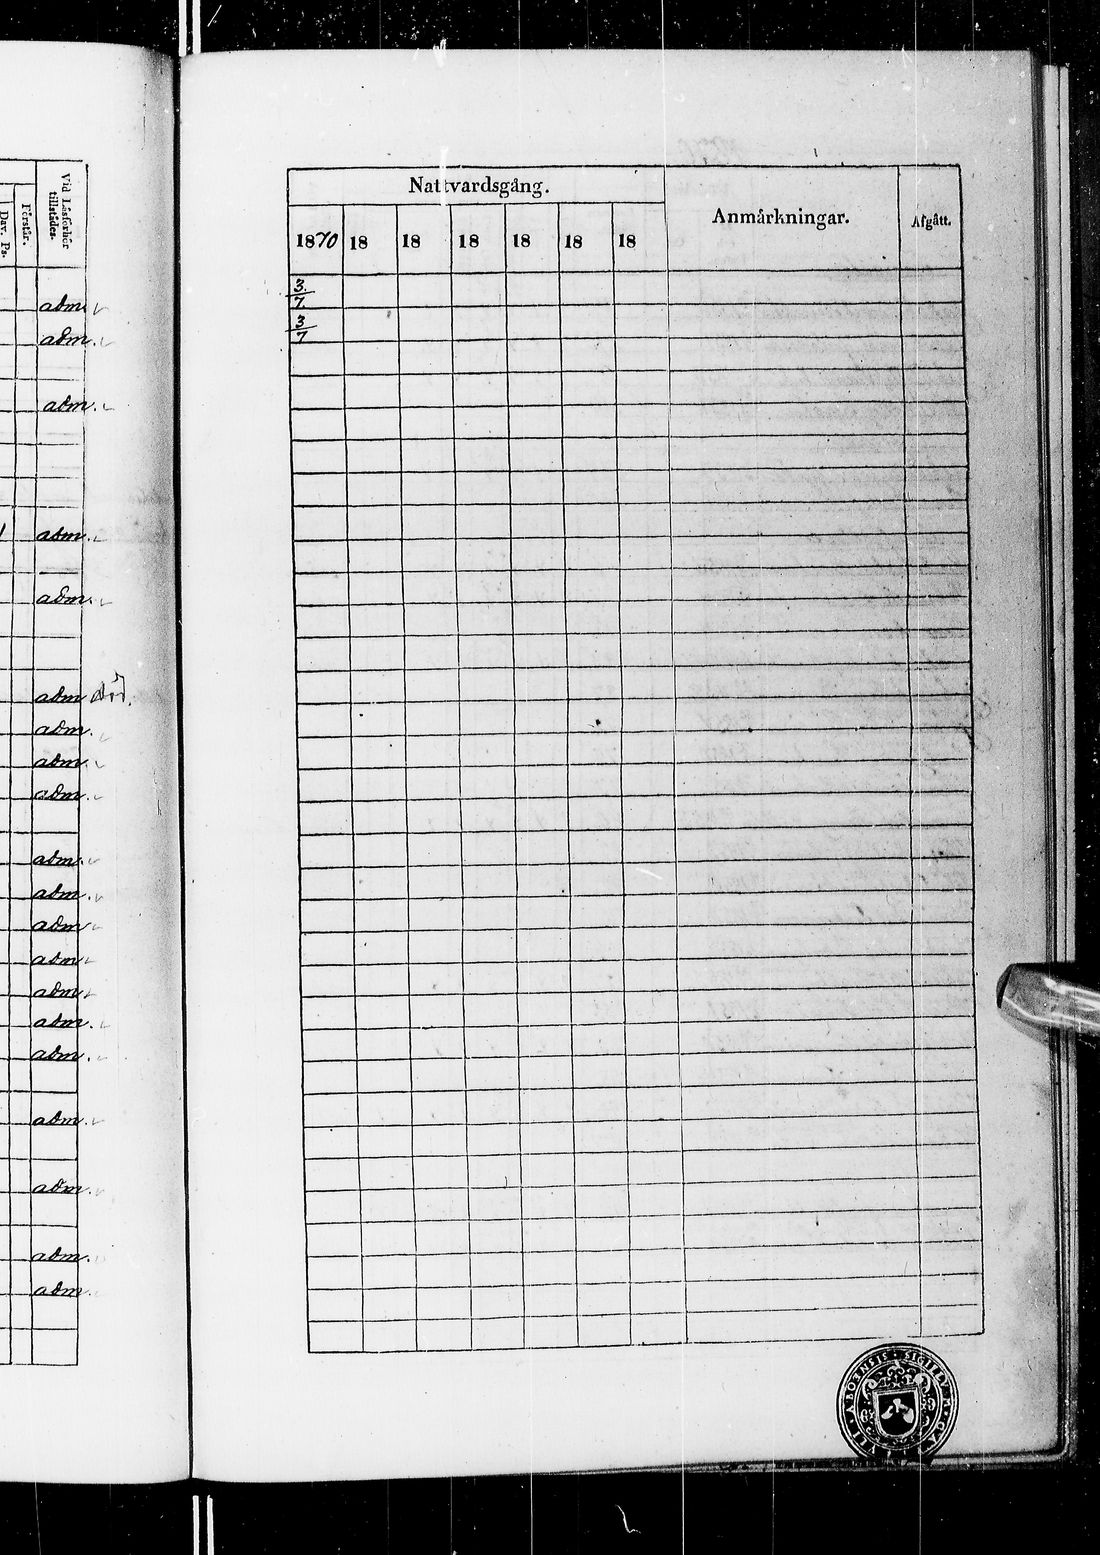 Dav. Ps.
Förstår.
Vid Läsförhör
tillstädes.
adm.
adm.
adm.
adm.
adm.
adm
adm.
adm.
adm.
adm.
adm.
adm
adm
adm.
adm.
adm.
adm.
adm.
adm.
adm.
Nattvardsgång.
Anmärkningar.
Afgått.
1870 18 18 18 18 18 18
3/7.
3/7
ABOENSIS · SIGILLUM